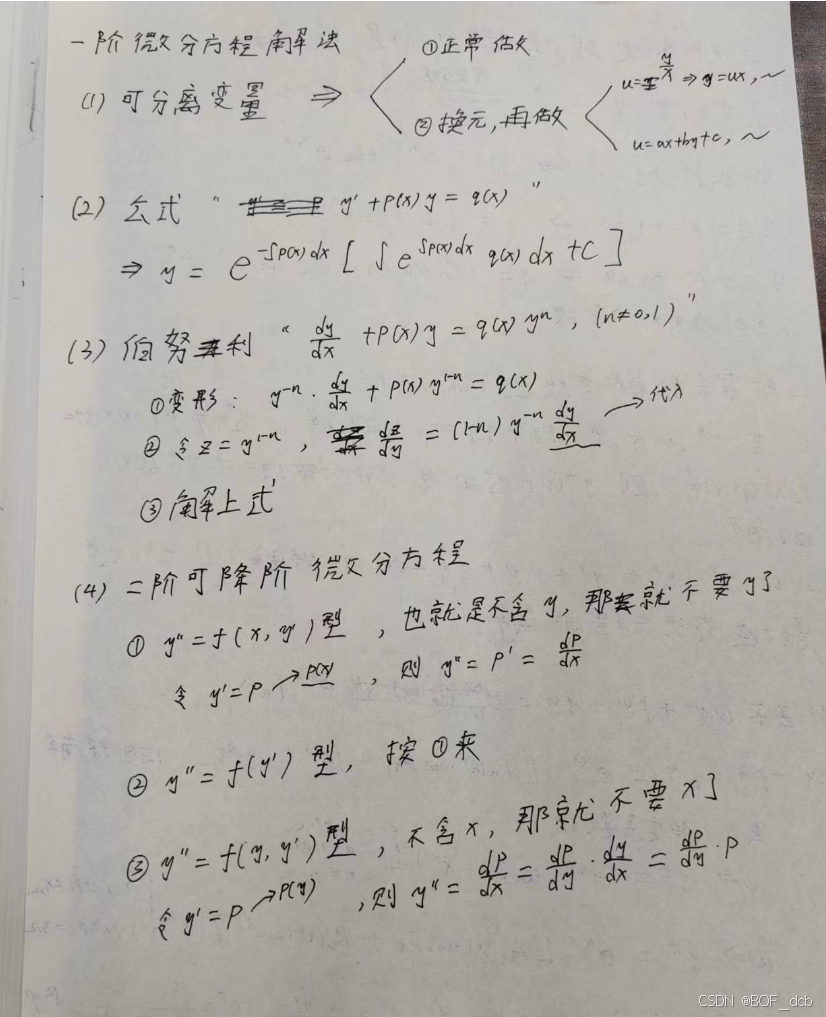 一阶微分方程解法
(1) 可分离变量 ⇒ ①正常做
②换元,再做
u=y/x ⇒ y=ux, ~
u=ax+by+c, ~
(2) 公式 “ y' + p(x)y = q(x) ”
⇒ y = e^{-∫p(x)dx} [ ∫ e^{∫p(x)dx} q(x) dx + C ]
(3) 伯努利 “ dy/dx + p(x)y = q(x) yⁿ , (n≠0,1) ”
①变形: y^{-n} · dy/dx + p(x) y^{1-n} = q(x)
②令 z = y^{1-n} , dz/dy = (1-n) y^{-n} dy/dx → 代入
③解上式
(4) 二阶可降阶微分方程
① y'' = f(x, y') 型 , 也就是不含 y, 那就不要 y了
令 y' = P → p(x) , 则 y'' = P' = dP/dx
② y'' = f(y') 型, 按①来
③ y'' = f(y, y') 型 , 不含 x, 那就不要 x了
令 y' = P → P(y) , 则 y'' = dP/dx = dP/dy · dy/dx = dP/dy · P
CSDN @BOF_dcb